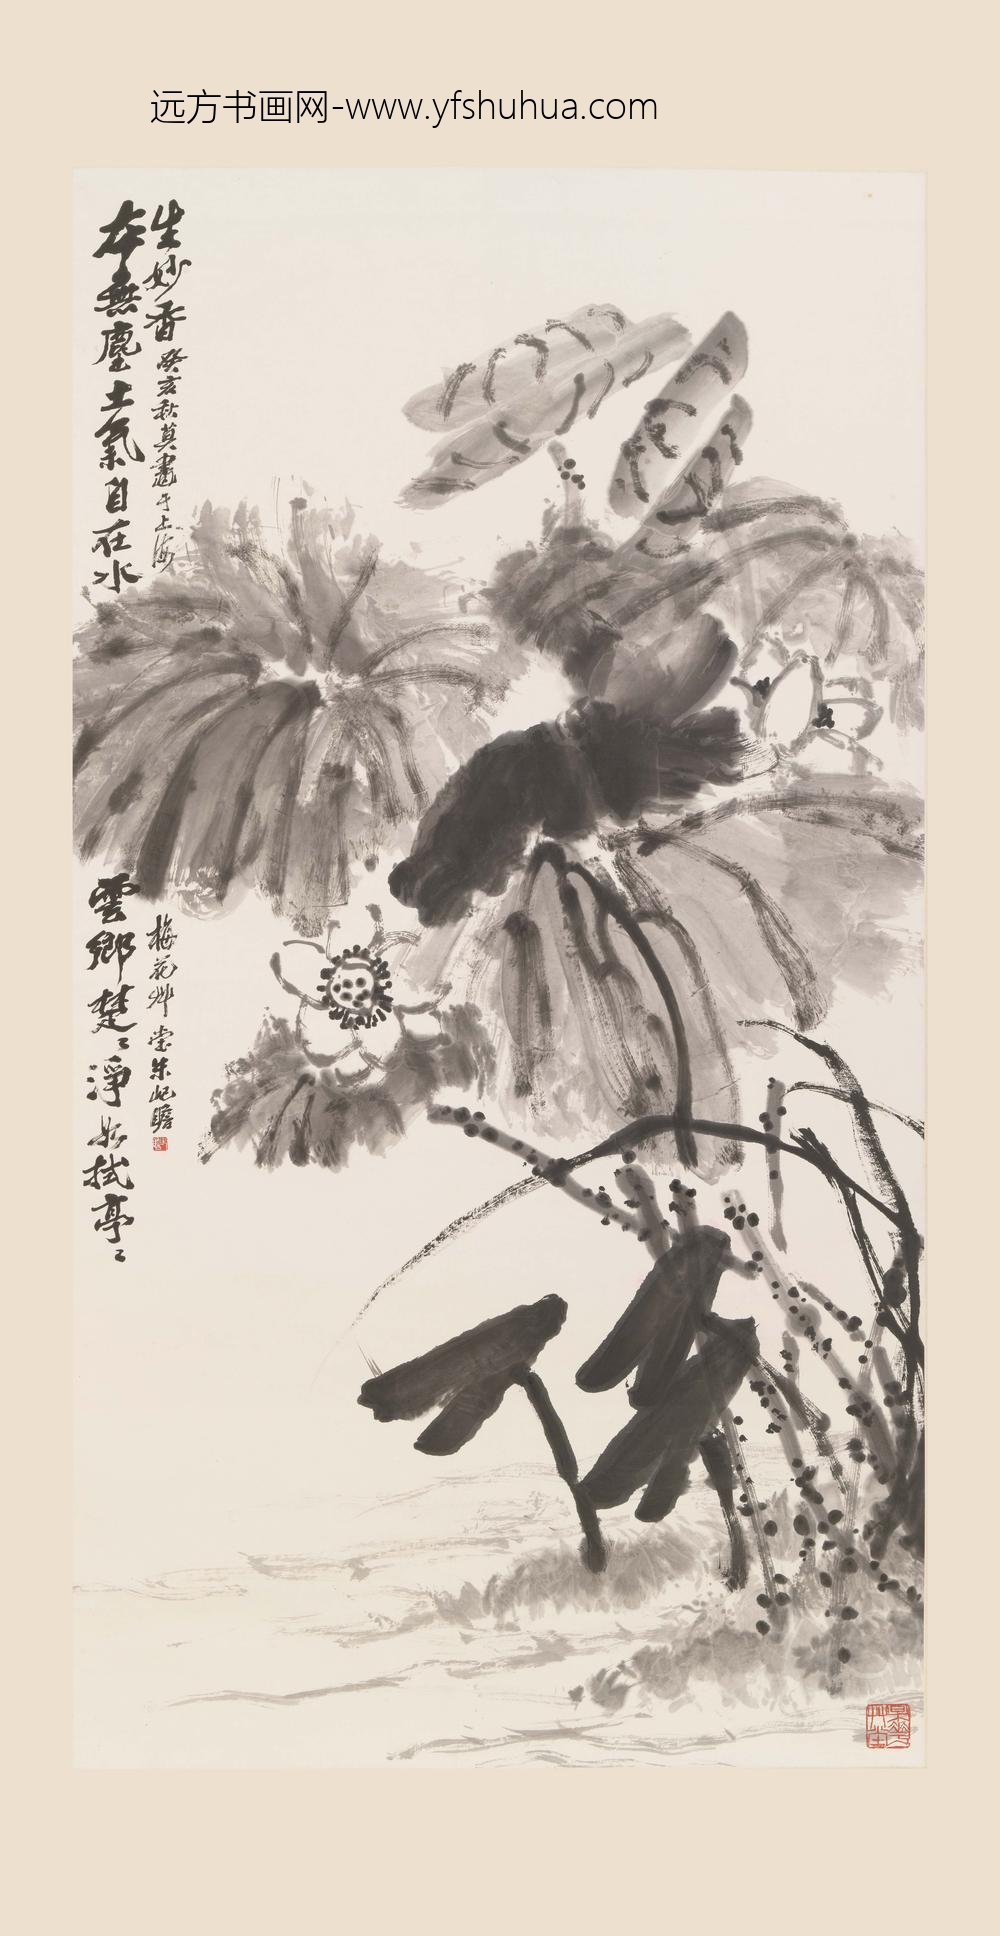 远方书画网-www.yfshuhua.com
本無塵土氣自在水
雲鄉楚〻淨如拭亭〻
生妙香 癸亥秋莫畫于上海
梅花艸堂朱屺瞻